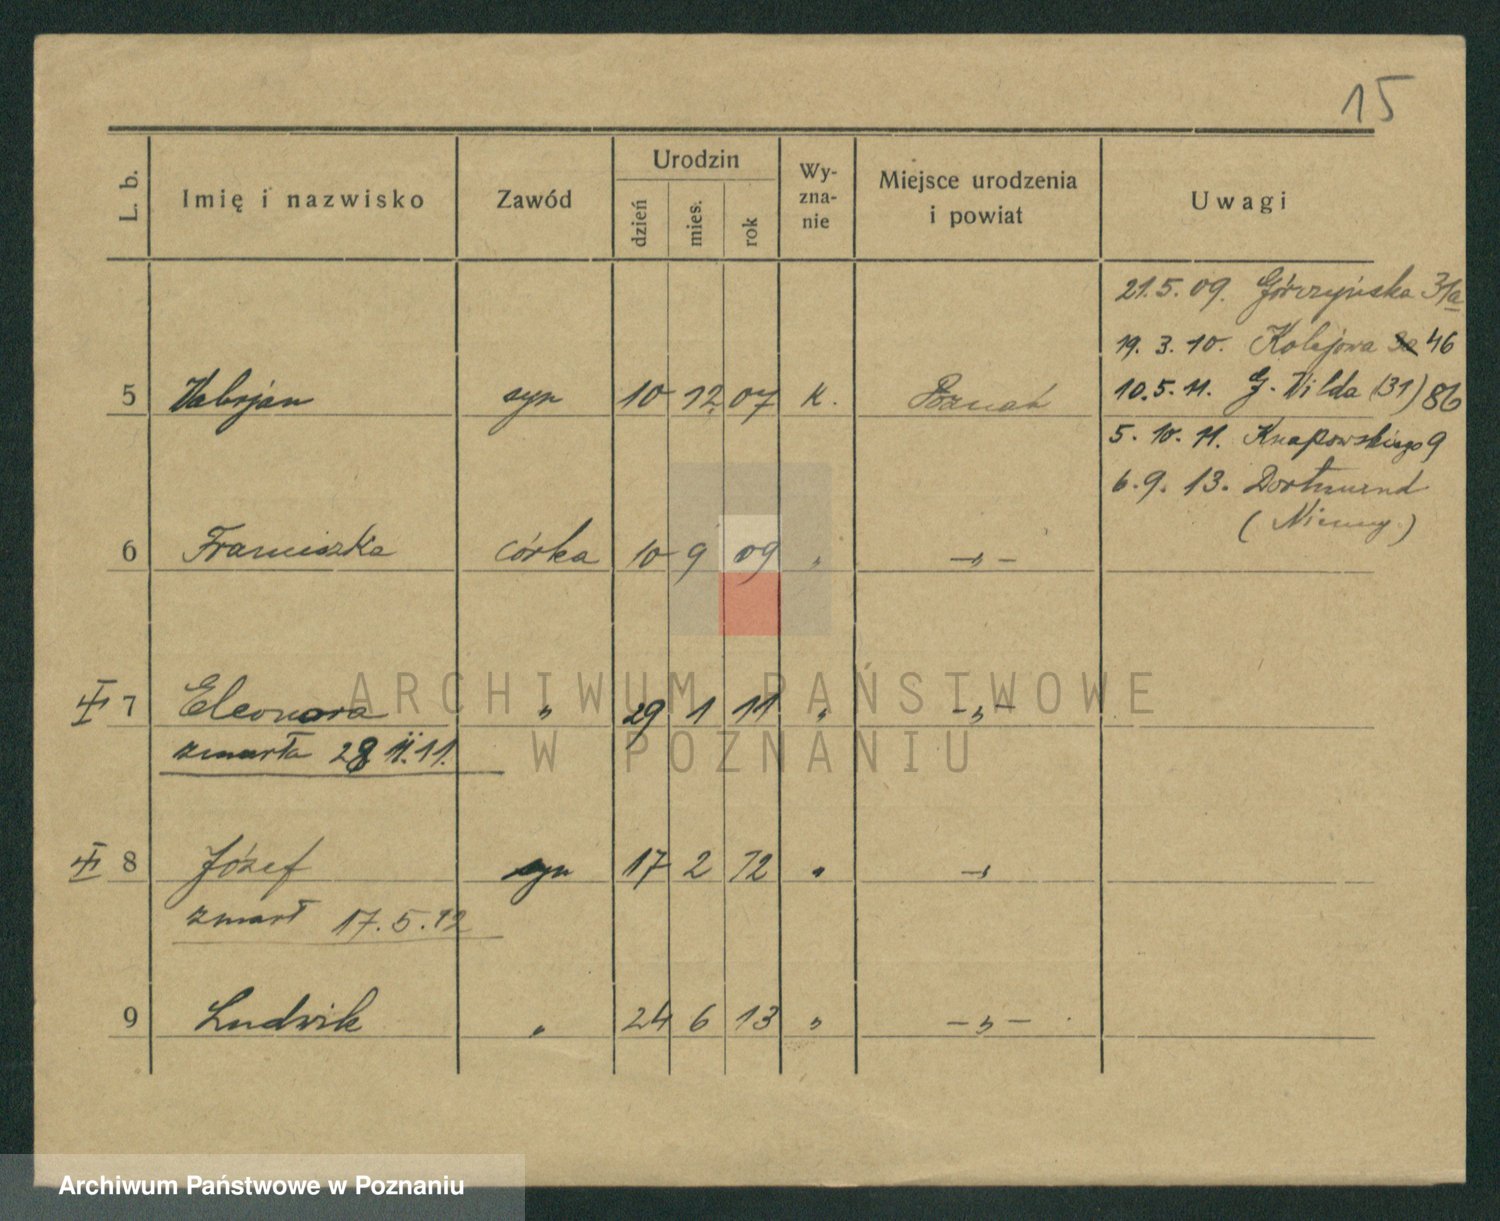 15
L. b.
Imię i nazwisko
Zawód
Urodzin
dzień
mies.
rok
Wy-
zna-
nie
Miejsce urodzenia
i powiat
Uwagi
21.5.09. Górczyńska 31a
19. 3. 10. Kolejowa 46
10.5.11. G. Wilda (31) 86
5 Walerjan syn 10 12 07 K. Poznań
5. 10. 11. Knapowskiego 9
6. 9. 13. Dortmund
(Niemcy.)
6 Franciszka córka 10 9 09 " —„—
7 Eleonora " 29 1 11 " —„—
zmarła 28 II. 11.
8 Józef syn 17 2 12 " —„
zmarł 17. 5. 12
9 Ludwik " 24 6 13 " —„—
ARCHIWUM PAŃSTWOWE
W POZNANIU
Archiwum Państwowe w Poznaniu